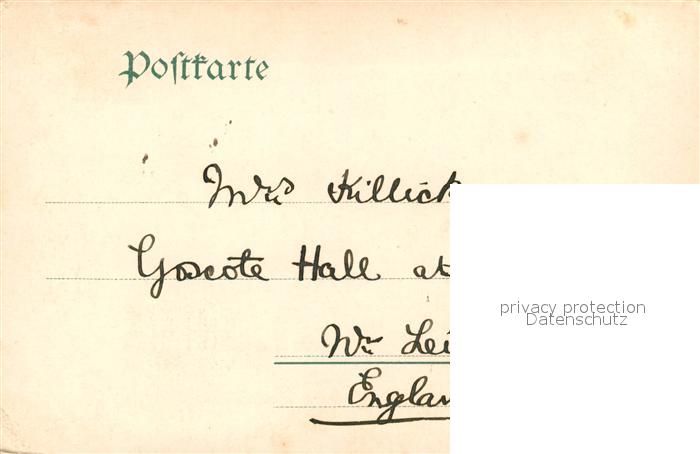 Postkarte
Mrs Killick
Goscote Hall at
Nr Lei
Englan
privacy protection
Datenschutz